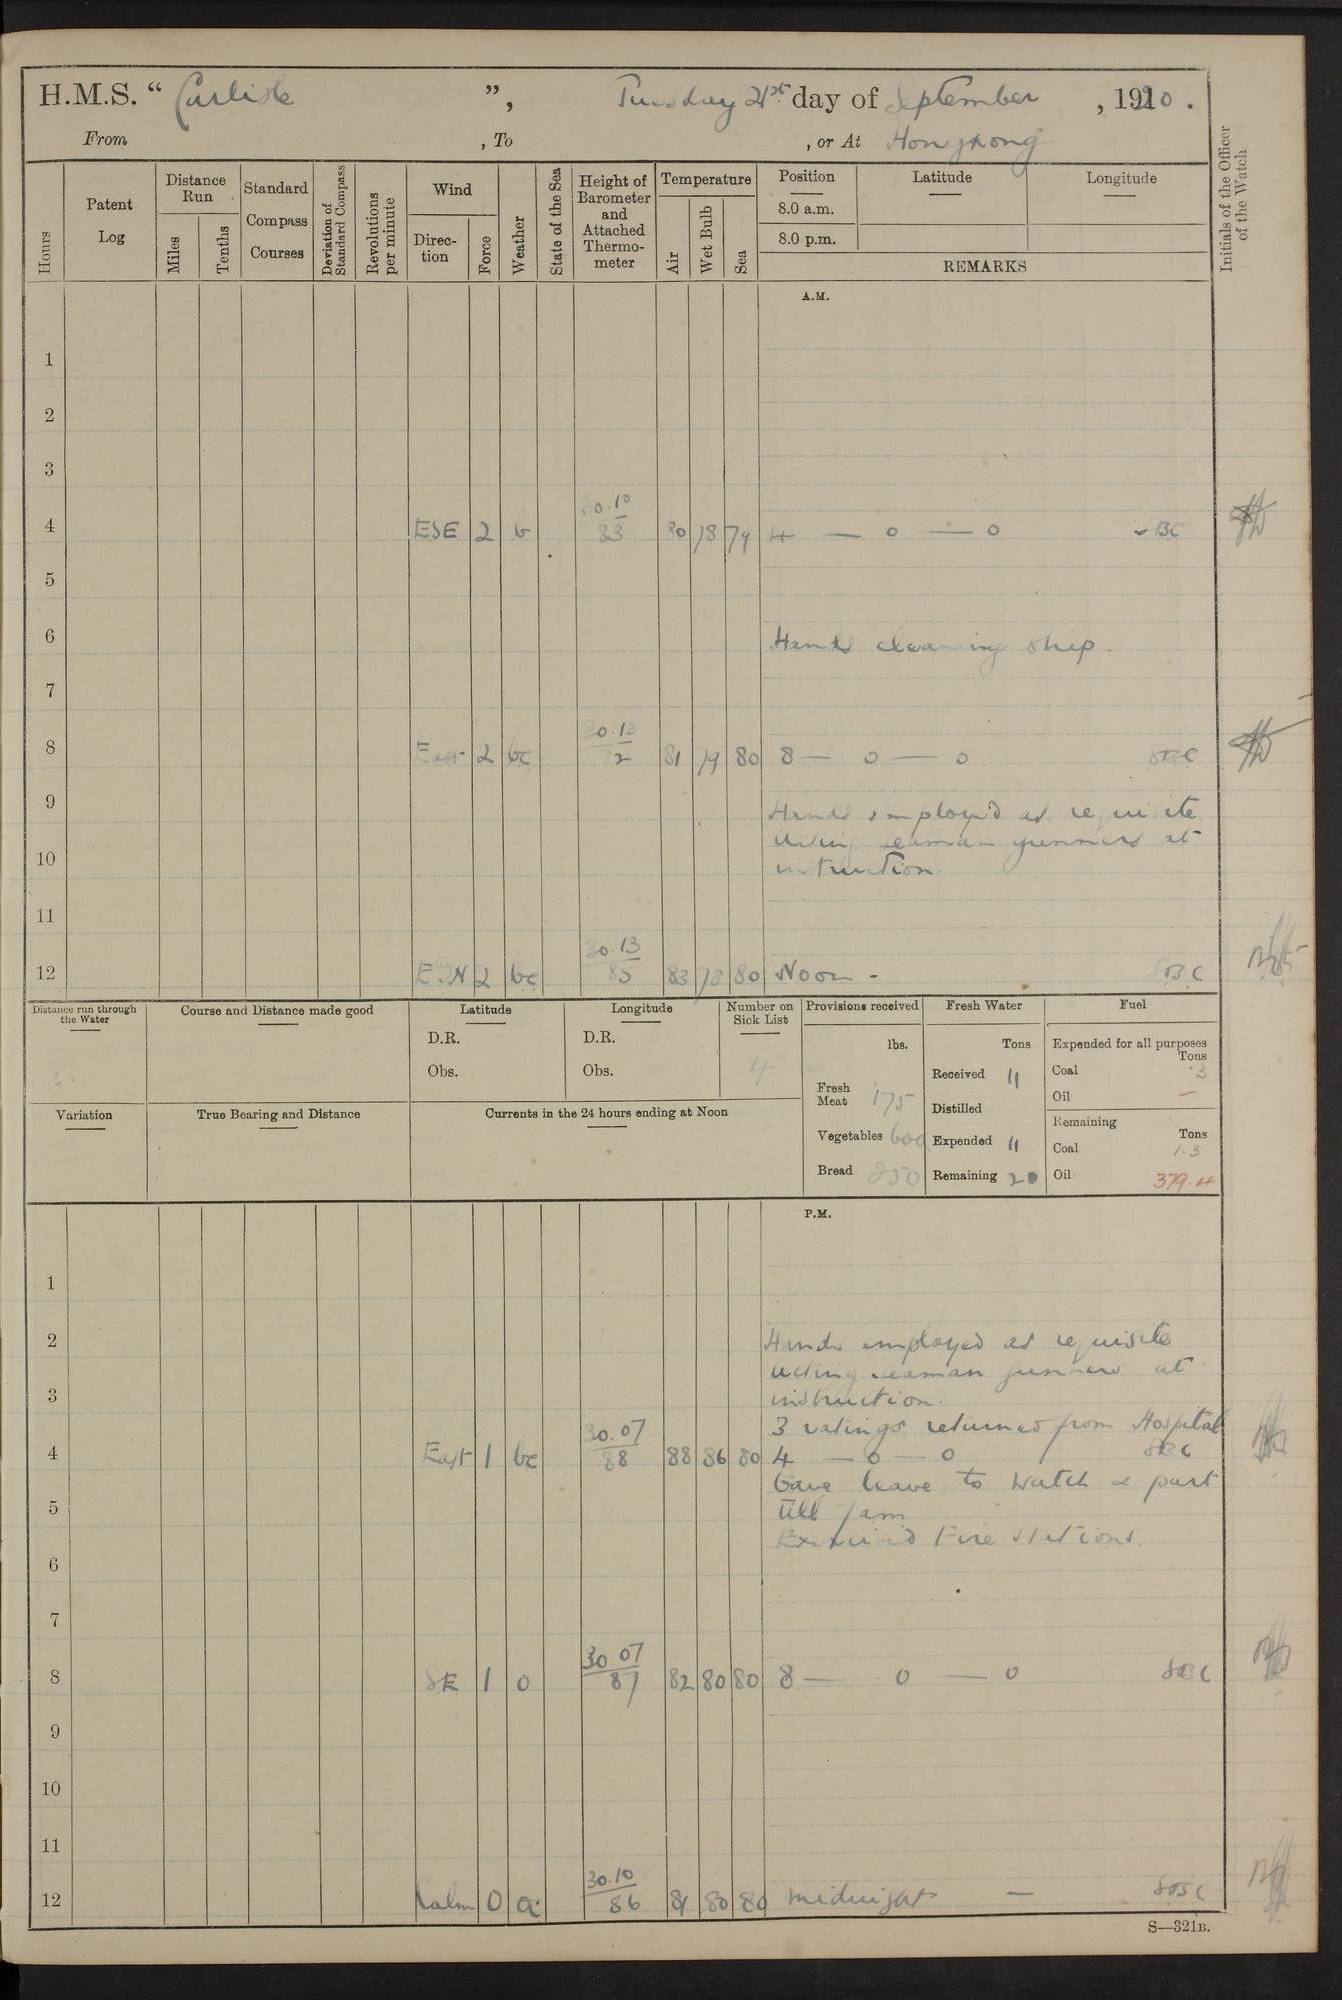 H.M.S. “ Carlisle ”, Tuesday 21st day of September , 1920 .
From , To , or At Hongkong
Hours
Patent Log
Distance Run
Miles
Tenths
Standard Compass Courses
Deviation of Standard Compass
Revolutions per minute
Wind
Direction
Force
Weather
State of the Sea
Height of Barometer and Attached Thermometer
Temperature
Air
Wet Bulb
Sea
Position
8.0 a.m.
8.0 p.m.
Latitude
Longitude
REMARKS
Initials of the Officer of the Watch
A.M.
1
2
3
4 ESE 2 b 30.10 83 80 78 79 4 — o — o
5
6 Hands cleaning ship.
7
8 East 2 bc 30.13 81 79 80 8 — o — o
9 Hands employed as requisite
acting seaman gunners at
10 instruction.
11
12 2 bc 30.13 85 83 78 80 Noon -
Distance run through the Water
Course and Distance made good
Latitude
D.R.
Obs.
Longitude
D.R.
Obs.
Number on Sick List
4
Provisions received
lbs.
Fresh Meat 175
Vegetables 600
Bread 250
Fresh Water
Tons
Received 11
Distilled
Expended 11
Remaining 20
Fuel
Expended for all purposes
Tons
Coal .3
Oil —
Remaining
Tons
Coal 1.3
Oil 379.4
Variation
True Bearing and Distance
Currents in the 24 hours ending at Noon
P.M.
1
2 Hands employed as requisite
acting seaman gunners at
3 instruction.
3 ratings returned from Hospital
4 East 1 bc 30.07 88 88 86 80 4 — o — o
Gave leave to watch & part
5 till 7am
Exercised Fire Stations.
6
7
8 SE 1 o 30.07 87 82 80 80 8 — o — o
9
10
11
12 Calm 0 30.10 86 81 80 80 midnight —
S—321B.